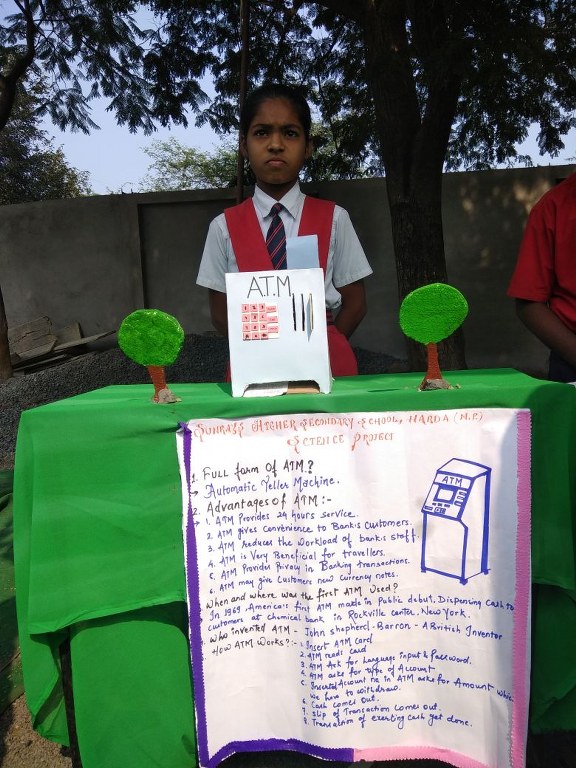 A.T.M
SUNRAYS HIGHER SECONDARY SCHOOL, HARDA (M.P.)
SCIENCE PROJECT
1. FULL form of ATM.?
→ Automatic Teller Machine.
2. Advantages of ATM :-
1. ATM Provides 24 hours service.
2. ATM gives convenience to Bank's Customers.
3. ATM Reduces the Workload of bank's staff.
4. ATM is Very Beneficial for travellers.
5. ATM Provides Privacy in Banking transactions.
6. ATM may give Customers new currency notes.
When and where was the first ATM Used?
In 1969 America's first ATM made its Public debut, Dispensing Cash to
customers at chemical bank in Rockville center, New York.
Who invented ATM - John shepherd-Barron - A British Inventor
How ATM Works? :- 1. Insert ATM Card
2. ATM reads card
3. ATM Ask for Language input & Password.
4. ATM asks for type of Account
5. Inserted Account no in ATM asks for Amount Which
we have to withdraw.
6. Cash comes out.
7. Slip of Transaction comes out.
8. Transaction of existing cash get done.
ATM